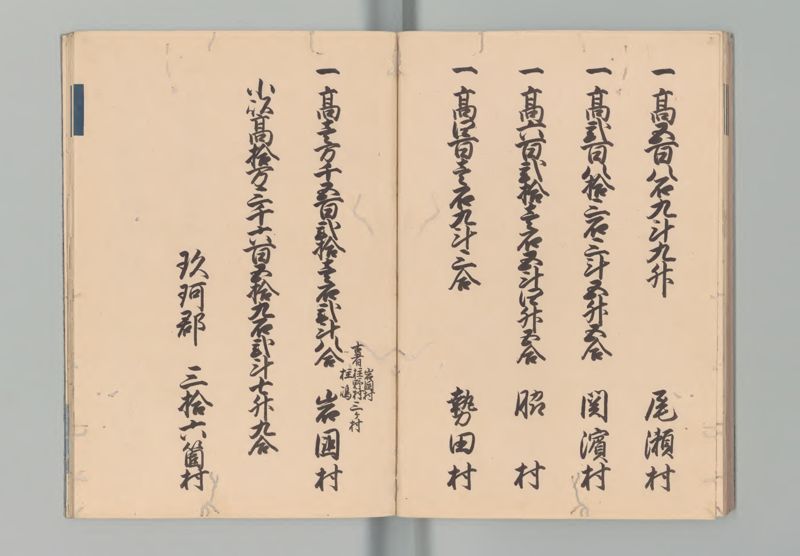 一高五百八石九斗九升 尾瀬村
一高弐百八拾三石三斗五升五合 関濱村
一高六百弐拾壱石五斗四升五合 昭村
一高四百壱石九斗三合 勢田村
一高壱万千五百弐拾壱石弐斗八合 岩國村
古者 岩國村
柱野村 三ヶ村
柱嶋
小以高拾万三千六百五拾九石弐斗七升九合
玖珂郡 三拾六箇村